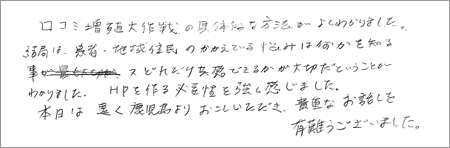 口コミ増殖大作戦の具体的な方法がよくわかりました。
結局は、患者・地域住民のかかえている悩みは何かを知る
事 又どれだけ共感できるかが大切だということが
わかりました。 HPを作る必要性を強く感じました。
本日は遠く鹿児島よりおこしいただき、貴重なお話しを
有難うございました。